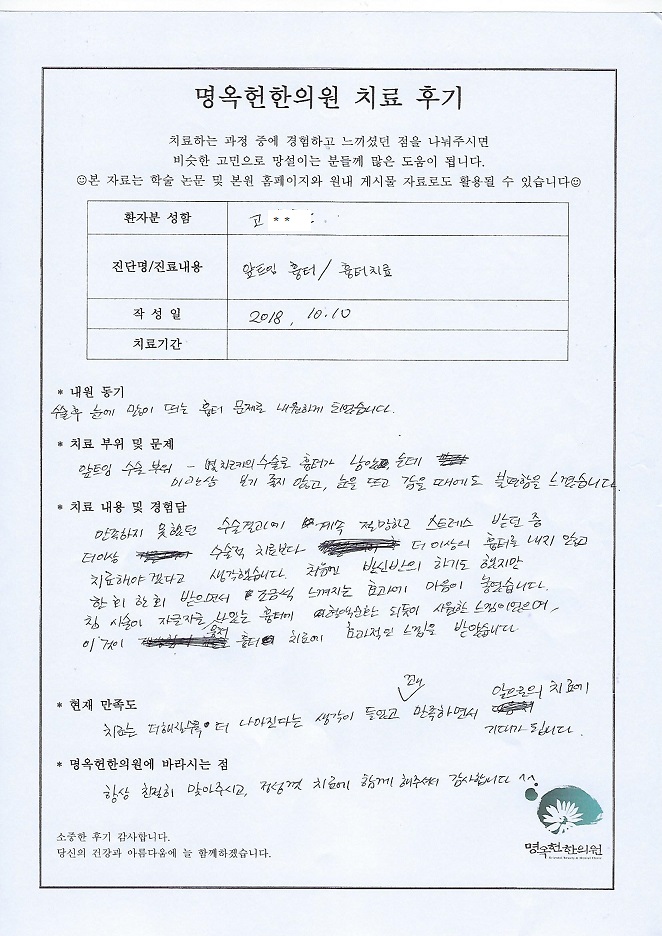 명옥헌한의원 치료 후기
치료하는 과정 중에 경험하고 느끼셨던 점을 나눠주시면
비슷한 고민으로 망설이는 분들께 많은 도움이 됩니다.
☺본 자료는 학술 논문 및 본원 홈페이지와 원내 게시물 자료로도 활용될 수 있습니다☺
환자분 성함 고 **
진단명/진료내용 앞트임 흉터 / 흉터치료
작 성 일 2018. 10. 10
치료기간
* 내원 동기
수술후 눈에 많이 띄는 흉터 문제로 내원하게 되었습니다.
* 치료 부위 및 문제
앞트임 수술 부위 - 몇 차례의 수술로 흉터가 남았는데
미관상 보기 좋지 않고, 눈을 뜨고 감을 때에도 불편함을 느꼈습니다.
* 치료 내용 및 경험담
만족하지 못했던 수술결과에 계속 절망하고 스트레스 받던 중
더이상 수술적 치료보다 더 이상의 흉터로 내지 않고
치료해야겠다고 생각했습니다. 처음엔 반신반의 하기도 했지만
한 회 한 회 받으면서 조금씩 느껴지는 효과에 마음이 놓였습니다.
침 시술이 자글자글 나있는 흉터에 되돌아 사용한 느낌이었으며,
이것이 흉터 치료에 효과적인 느낌을 받았습니다.
* 현재 만족도
꽤
치료는 더해질수록 더 나아진다는 생각이 들었고 만족하면서 앞으로의 치료에
기대가 됩니다.
* 명옥헌한의원에 바라시는 점
항상 친절히 맞아주시고, 정성껏 치료에 함께 해주셔서 감사합니다 ^^
소중한 후기 감사합니다.
당신의 건강과 아름다움에 늘 함께하겠습니다.
명옥헌한의원